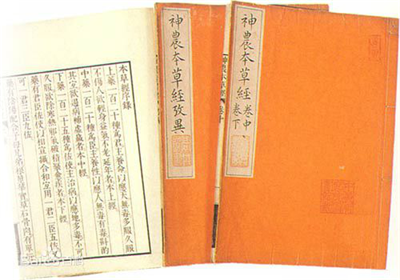 本草經序錄
上藥一百二十種爲君主養命以應天無毒多服久服
不傷人欲輕身益氣不老延年者本上經
中藥一百二十種爲臣主養性以應人無毒有毒斟酌
其宜欲遏病補虛羸者本中經
下藥一百二十五種爲佐使主治病以應地多毒不可
久服欲除寒熱邪氣破積聚愈疾者本下經
藥有君臣佐使以相宣攝合和宜用一君二臣五佐
可一君三臣九佐
神農本草經攷異
神農本草經 卷中
卷下